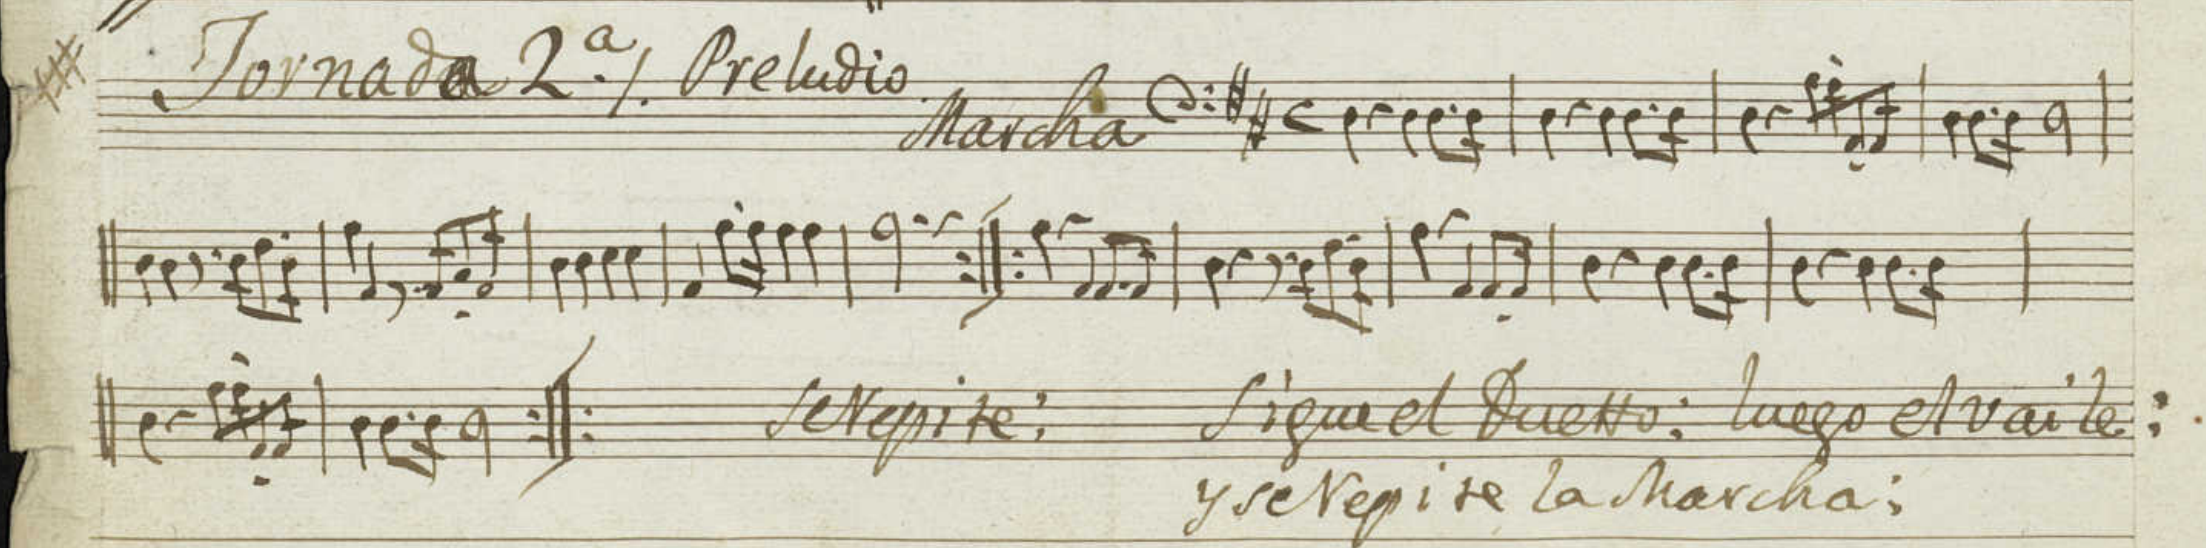 Jornada 2.ª/. Preludio
Marcha
se Repite;
Sigue el Duetto: luego el vaile:
y se Repite la Marcha;